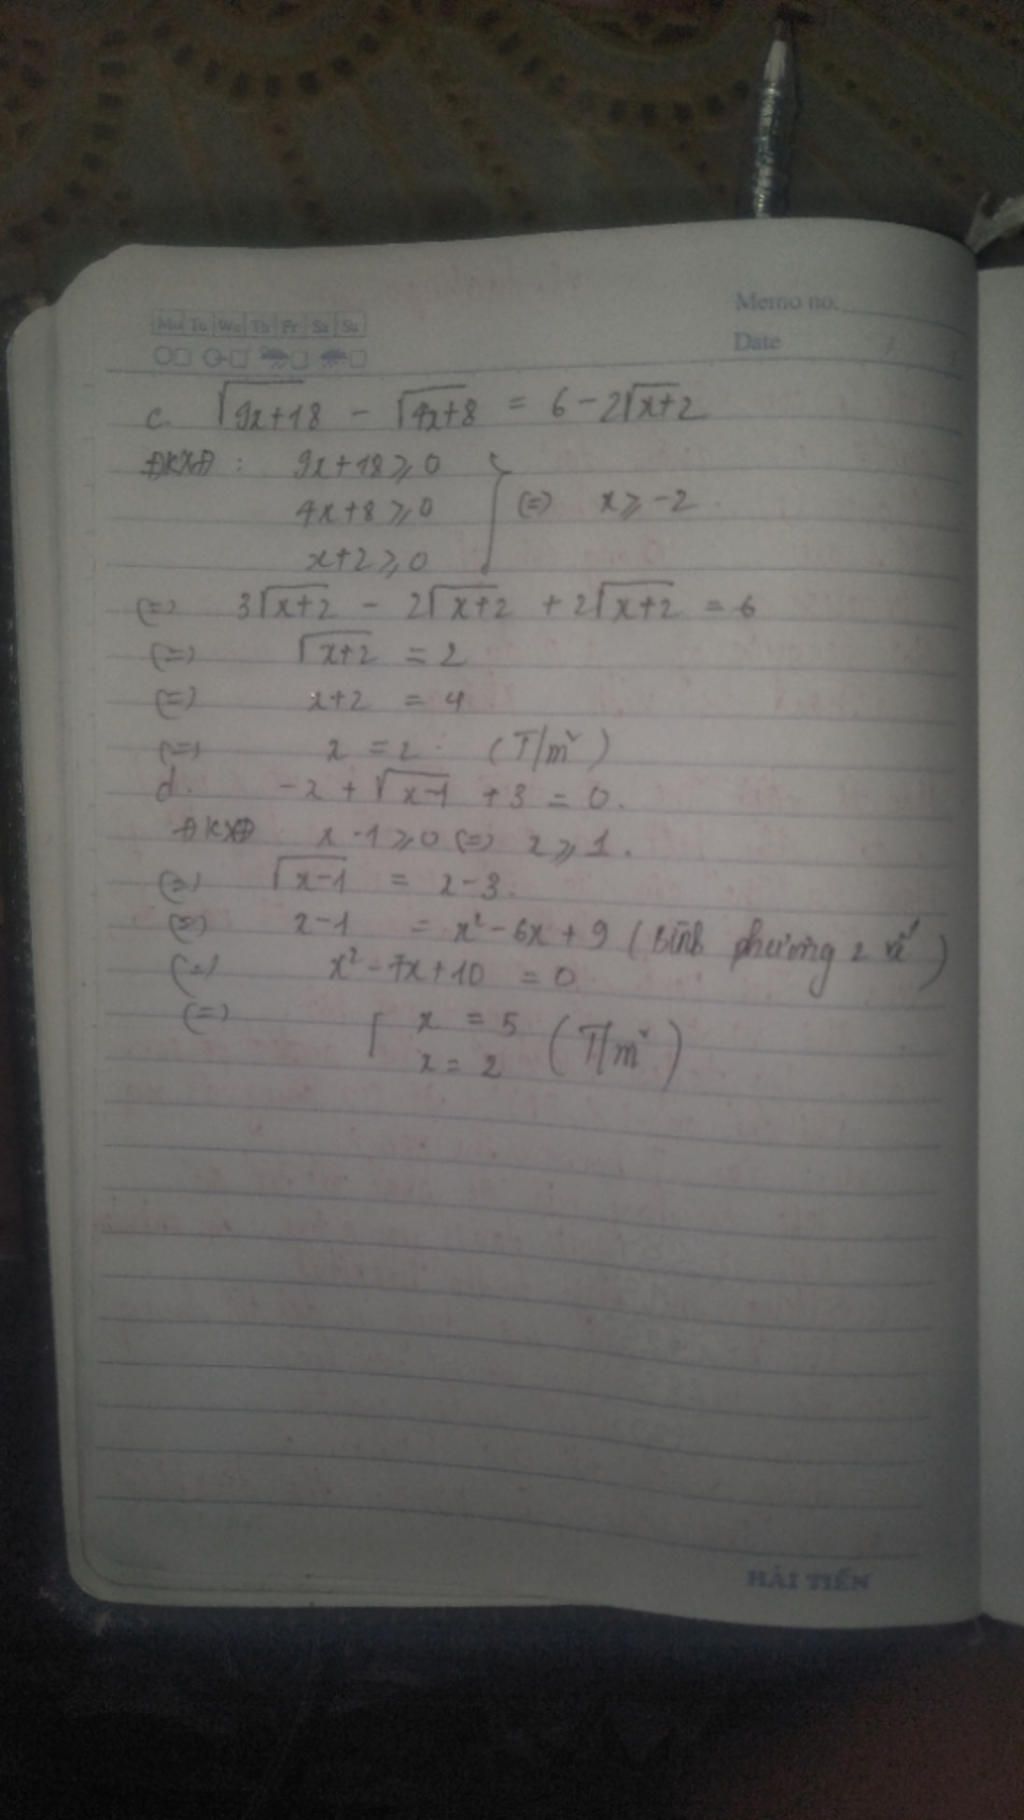 Memo no.
Mo Tu We Th Fr Sa Su
Date
c. √(9x+18) - √(4x+8) = 6-2√(x+2)
ĐKXĐ : 9x+18 ≥ 0
4x+8 ≥ 0 } (=) x ≥ -2
x+2 ≥ 0
(=) 3√(x+2) - 2√(x+2) + 2√(x+2) = 6
(=) √(x+2) = 2
(=) x+2 = 4
(=) x = 2. (T/m²)
d. -x + √(x-1) + 3 = 0.
ĐKXĐ x-1 ≥ 0 (=) x ≥ 1.
(=) √(x-1) = x-3.
(=) x-1 = x² - 6x + 9 (Bình phương 2 vế)
(=) x² - 7x + 10 = 0
(=) [ x = 5 (T/m²)
x = 2
HẢI TIẾN